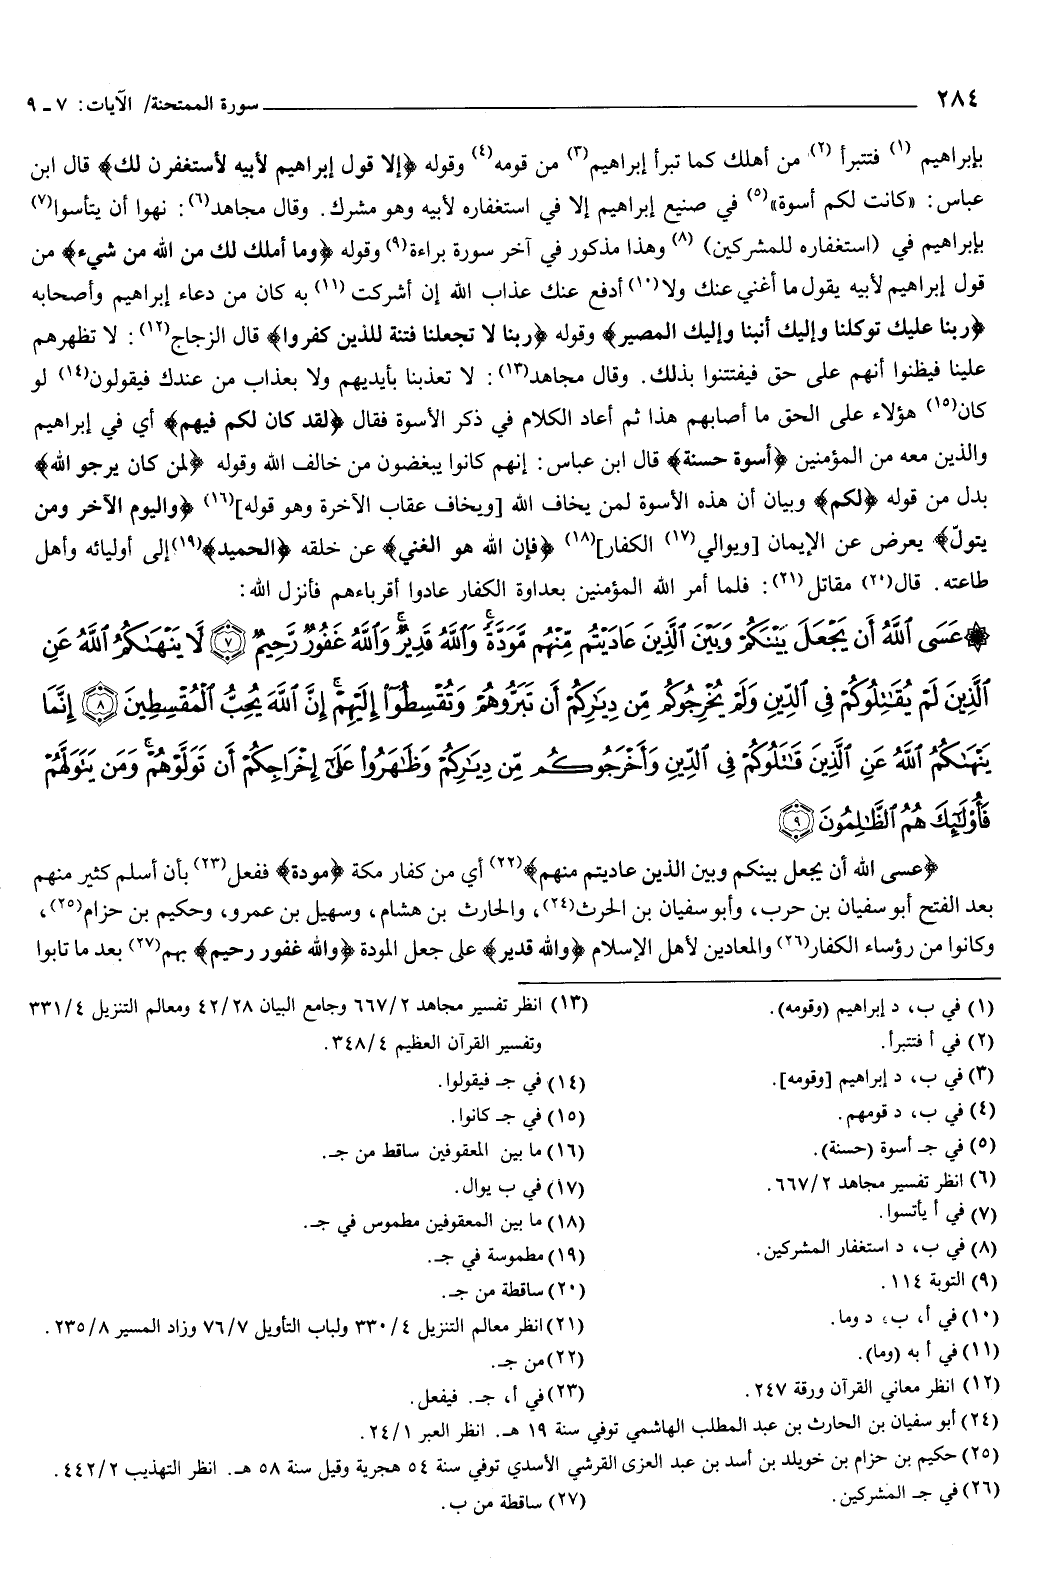 ٢٨٤ سورة الممتحنة/ الآيات: ٧ ـ ٩
بإبراهيم (١) فتتبرأ (٢) من أهلك كما تبرأ إبراهيم(٣) من قومه(٤) وقوله ﴿إلا قول إبراهيم لأبيه لأستغفرن لك﴾ قال ابن
عباس: «كانت لكم أسوة»(٥) في صنيع إبراهيم إلا في استغفاره لأبيه وهو مشرك. وقال مجاهد(٦): نهوا أن يتأسوا(٧)
بإبراهيم في (استغفاره للمشركين) (٨) وهذا مذكور في آخر سورة براءة(٩) وقوله ﴿وما أملك لك من الله من شيء﴾ من
قول إبراهيم لأبيه يقول ما أغني عنك ولا(١٠) أدفع عنك عذاب الله إن أشركت (١١) به كان من دعاء إبراهيم وأصحابه
﴿ربنا عليك توكلنا وإليك أنبنا وإليك المصير﴾ وقوله ﴿ربنا لا تجعلنا فتنة للذين كفروا﴾ قال الزجاج(١٢): لا تظهرهم
علينا فيظنوا أنهم على حق فيفتتنوا بذلك. وقال مجاهد(١٣): لا تعذبنا بأيديهم ولا بعذاب من عندك فيقولون(١٤) لو
كان(١٥) هؤلاء على الحق ما أصابهم هذا ثم أعاد الكلام في ذكر الأسوة فقال ﴿لقد كان لكم فيهم﴾ أي في إبراهيم
والذين معه من المؤمنين ﴿أسوة حسنة﴾ قال ابن عباس: إنهم كانوا يبغضون من خالف الله وقوله ﴿لمن كان يرجو الله﴾
بدل من قوله ﴿لكم﴾ وبيان أن هذه الأسوة لمن يخاف الله [ويخاف عقاب الآخرة وهو قوله](١٦) ﴿واليوم الآخر ومن
يتولّ﴾ يعرض عن الإيمان [ويوالي(١٧) الكفار](١٨) ﴿فإن الله هو الغني﴾ عن خلقه ﴿الحميد﴾(١٩)إلى أوليائه وأهل
طاعته. قال(٢٠) مقاتل(٢١): فلما أمر الله المؤمنين بعداوة الكفار عادوا أقرباءهم فأنزل الله:
۞ عَسَى ٱللَّهُ أَن يَجْعَلَ بَيْنَكُمْ وَبَيْنَ ٱلَّذِينَ عَادَيْتُم مِّنْهُم مَّوَدَّةً ۚ وَٱللَّهُ قَدِيرٌ ۚ وَٱللَّهُ غَفُورٌ رَّحِيمٌ ﴿٧﴾ لَّا يَنْهَىٰكُمُ ٱللَّهُ عَنِ
ٱلَّذِينَ لَمْ يُقَـٰتِلُوكُمْ فِى ٱلدِّينِ وَلَمْ يُخْرِجُوكُم مِّن دِيَـٰرِكُمْ أَن تَبَرُّوهُمْ وَتُقْسِطُوٓا۟ إِلَيْهِمْ ۚ إِنَّ ٱللَّهَ يُحِبُّ ٱلْمُقْسِطِينَ ﴿٨﴾ إِنَّمَا
يَنْهَىٰكُمُ ٱللَّهُ عَنِ ٱلَّذِينَ قَـٰتَلُوكُمْ فِى ٱلدِّينِ وَأَخْرَجُوكُم مِّن دِيَـٰرِكُمْ وَظَـٰهَرُوا۟ عَلَىٰٓ إِخْرَاجِكُمْ أَن تَوَلَّوْهُمْ ۚ وَمَن يَتَوَلَّهُمْ
فَأُو۟لَـٰٓئِكَ هُمُ ٱلظَّـٰلِمُونَ ﴿٩﴾
﴿عسى الله أن يجعل بينكم وبين الذين عاديتم منهم﴾(٢٢) أي من كفار مكة ﴿مودة﴾ ففعل(٢٣) بأن أسلم كثير منهم
بعد الفتح أبو سفيان بن حرب، وأبو سفيان بن الحرث(٢٤)، والحارث بن هشام، وسهيل بن عمرو، وحكيم بن حزام(٢٥)،
وكانوا من رؤساء الكفار(٢٦) والمعادين لأهل الإسلام ﴿والله قدير﴾ على جعل المودة ﴿والله غفور رحيم﴾ بهم(٢٧) بعد ما تابوا
(١) في ب، د إبراهيم (وقومه).
(٢) في أ فتتبرأ.
(٣) في ب، د إبراهيم [وقومه].
(٤) في ب، د قومهم.
(٥) في جـ أسوة (حسنة).
(٦) انظر تفسير مجاهد ٢/ ٦٦٧.
(٧) في أ يأتسوا.
(٨) في ب، د استغفار المشركين.
(٩) التوبة ١١٤.
(١٠) في أ، ب، د وما.
(١١) في أ به (وما).
(١٢) انظر معاني القرآن ورقة ٢٤٧.
(١٣) انظر تفسير مجاهد ٢/ ٦٦٧ وجامع البيان ٢٨/ ٤٢ ومعالم التنزيل ٤/ ٣٣١
وتفسير القرآن العظيم ٤/ ٣٤٨.
(١٤) في جـ فيقولوا.
(١٥) في جـ كانوا.
(١٦) ما بين المعقوفين ساقط من جـ.
(١٧) في ب يوال.
(١٨) ما بين المعقوفين مطموس في جـ.
(١٩) مطموسة في جـ.
(٢٠) ساقطة من جـ.
(٢١) انظر معالم التنزيل ٤/ ٣٣٠ ولباب التأويل ٧/ ٧٦ وزاد المسير ٨/ ٢٣٥.
(٢٢) من جـ.
(٢٣) في أ، جـ. فيفعل.
(٢٤) أبو سفيان بن الحارث بن عبد المطلب الهاشمي توفي سنة ١٩ هـ. انظر العبر ١/ ٢٤.
(٢٥) حكيم بن حزام بن خويلد بن أسد بن عبد العزى القرشي الأسدي توفي سنة ٥٤ هجرية وقيل سنة ٥٨ هـ. انظر التهذيب ٢/ ٤٤٢.
(٢٦) في جـ المشركين.
(٢٧) ساقطة من ب.